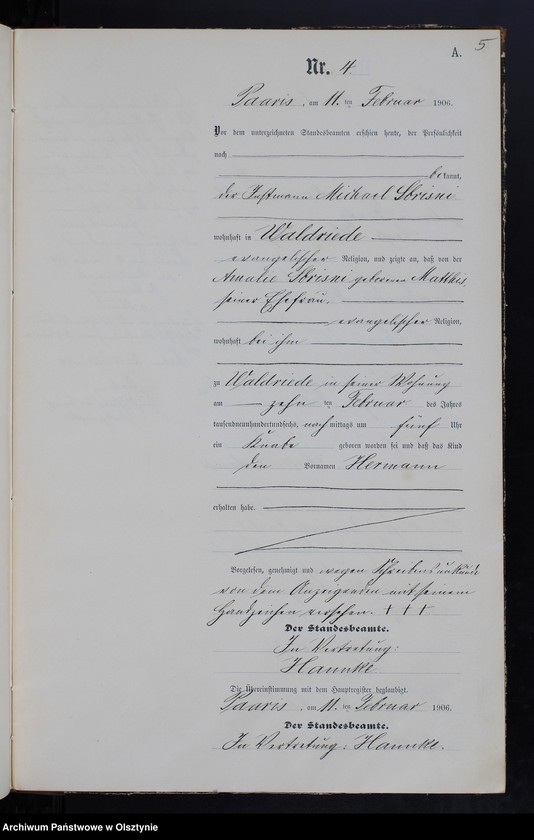 5
A.
Nr. 4
Paaris, am 11. ten Februar 1906.
Vor dem unterzeichneten Standesbeamten erschien heute, der Persönlichkeit
nach
bekannt,
der Instmann Michael
wohnhaft in Waldriede
evangelischer Religion, und zeigte an, daß von der
Amalie geborenen Matthis,
seiner Ehefrau,
evangelischer Religion,
wohnhaft bei ihm
zu Waldriede in seiner Wohnung
am zehn ten Februar des Jahres
tausendneunhundertundsechs, nachmittags um fünf Uhr
ein Knabe geboren worden sei und daß das Kind
den Vornamen Hermann
erhalten habe.
Vorgelesen, genehmigt und wegen Schreibensunkunde
von dem Anzeigenden mit seinem
Handzeichen versehen. + + +
Der Standesbeamte.
In Vertretung:
Hannke
Die Übereinstimmung mit dem Hauptregister beglaubigt.
Paaris, am 11. ten Februar 1906.
Der Standesbeamte.
In Vertretung: Hannke.
Archiwum Państwowe w Olsztynie